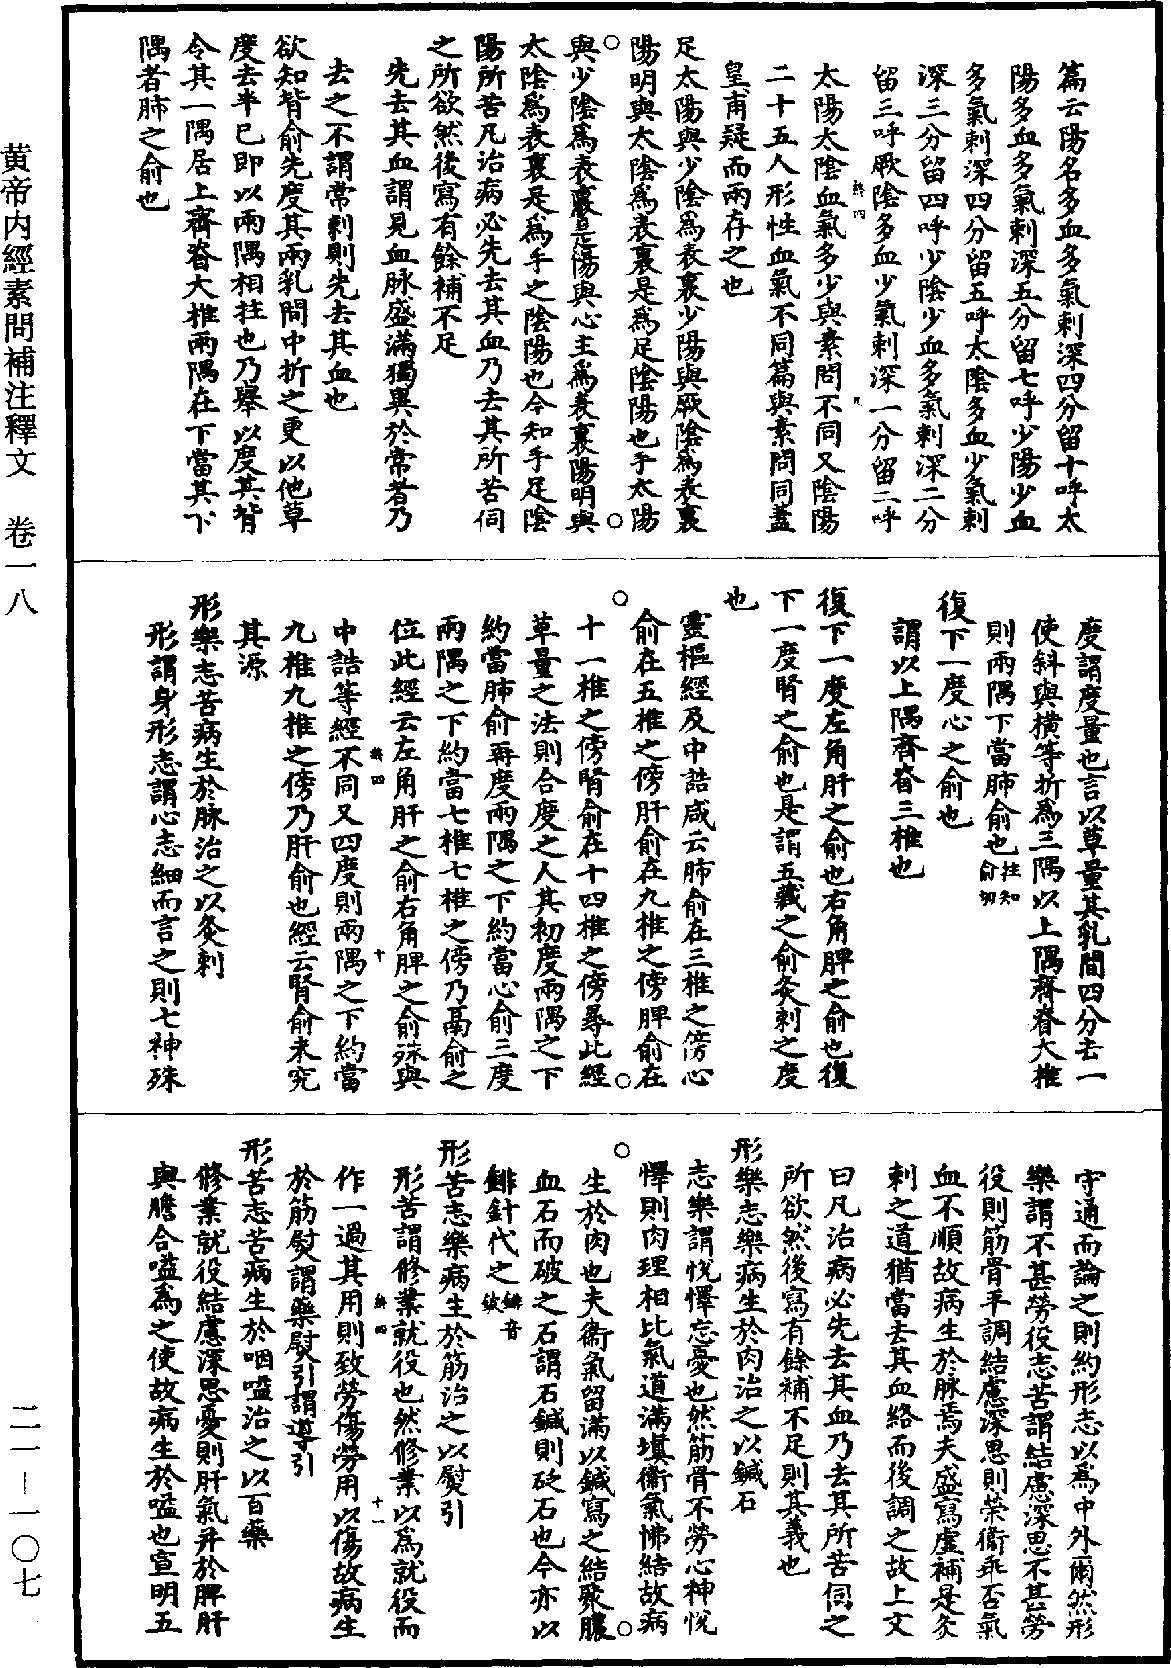 篇云陽名多血多氣刺深四分留十呼太
陽多血多氣刺深五分留七呼少陽少血
多氣刺深四分留五呼太陰多血少氣刺
深三分留四呼少陰少血多氣刺深二分
留三呼厥陰多血少氣刺深一分留二呼
太陽太陰血氣多少與素問不同又陰陽
二十五人形性血氣不同篇與素問同蓋
皇甫疑而兩存之也
足太陽與少陰為表裏少陽與厥陰為表裏
陽明與太陰為表裏是為足陰陽也手太陽
與少陰為表裏少陽與心主為表裏陽明與
太陰為表裏是為手之陰陽也今知手足陰
陽所苦凡治病必先去其血乃去其所苦伺
之所欲然後寫有餘補不足
先去其血謂見血脉盛滿獨異於常者乃
去之不謂常刺則先去其血也
欲知背俞先度其兩乳間中折之更以他草
度去半已即以兩隅相拄也乃舉以度其背
令其一隅居上齊脊大椎兩隅在下當其下
隅者肺之俞也
度謂度量也言以草量其乳間四分去一
使斜與橫等折為三隅以上隅齊脊大椎
則兩隅下當肺俞也拄知俞切
復下一度心之俞也
謂以上隅齊脊三椎也
復下一度左角肝之俞也右角脾之俞也復
下一度腎之俞也是謂五藏之俞灸刺之度
也
靈樞經及中誥咸云肺俞在三椎之傍心
俞在五椎之傍肝俞在九椎之傍脾俞在
十一椎之傍腎俞在十四椎之傍尋此經
草量之法則合度之人其初度兩隅之下
約當肺俞再度兩隅之下約當心俞三度
兩隅之下約當七椎七椎之傍乃鬲俞之
位此經云左角肝之俞右角脾之俞殊與
中誥等經不同又四度則兩隅之下約當
九椎九椎之傍乃肝俞也經云腎俞未究
其源
形樂志苦病生於脉治之以灸刺
形謂身形志謂心志細而言之則七神殊
守通而論之則約形志以為中外爾然形
樂謂不甚勞役志苦謂結慮深思不甚勞
役則筋骨平調結慮深思則榮衞乖否氣
血不順故病生於脉焉夫盛寫虛補是灸
刺之道猶當去其血絡而後調之故上文
曰凡治病必先去其血乃去其所苦伺之
所欲然後寫有餘補不足則其義也
形樂志樂病生於肉治之以鍼石
志樂謂悅懌忘憂也然筋骨不勞心神悅
懌則肉理相比氣道滿填衞氣怫結故病
生於肉也夫衞氣留滿以鍼寫之結聚膿
血石而破之石謂石鍼則砭石也今亦以
䤵針代之䤵音鈹
形苦志樂病生於筋治之以熨引
形苦謂修業就役也然修業以為就役而
作一過其用則致勞傷勞用以傷故病生
於筋熨謂藥熨引謂導引
形苦志苦病生於咽嗌治之以百藥
修業就役結慮深思憂則肝氣并於脾肝
與膽合嗌為之使故病生於嗌也宣明五
黃帝內經素問補注釋文　卷一八
二一—一〇七